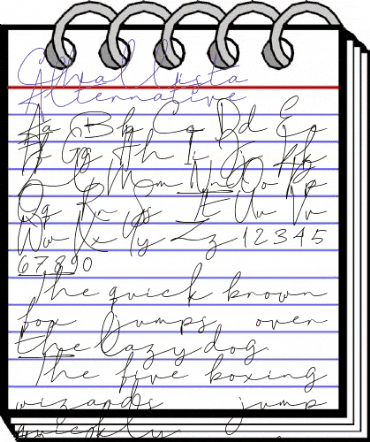 Alternative
Aa Bb Cc Dd Ee
Ff Gg Hh Ii Jj Kk
Ll Mm Nn Oo Pp
Qq Rr Ss Tt Uu Vv
Ww Xx Yy Zz 1 2 3 4 5
6 7 8 9 0
The quick brown
fox jumps over
the lazy dog
The five boxing
wizards jump
quickly